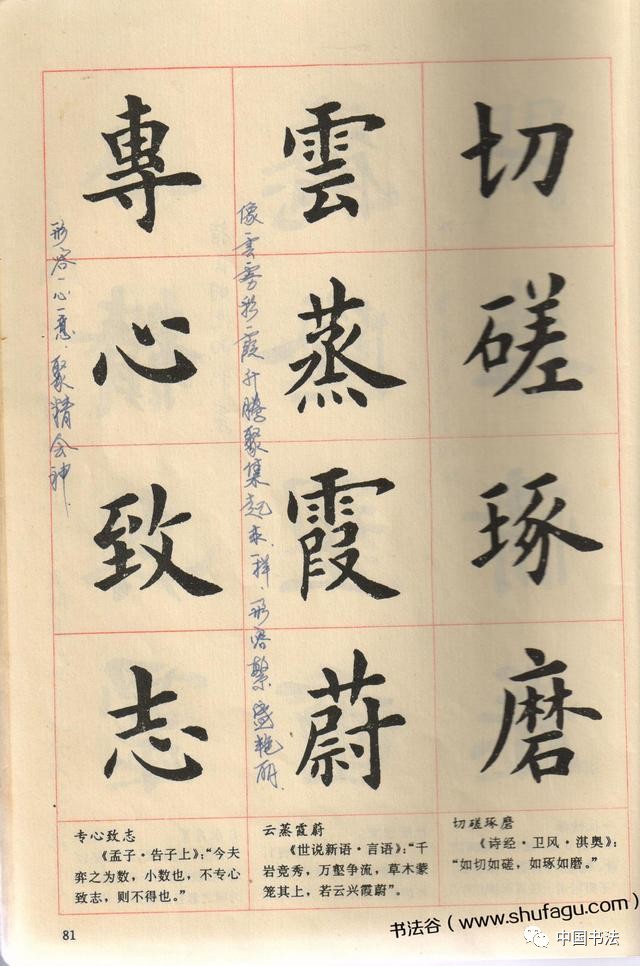 切磋琢磨
雲蒸霞蔚
像云雾彩霞升腾聚集起来一样，形容繁盛艳丽
專心致志
形容一心一意，聚精会神
切磋琢磨
《诗经·卫风·淇奥》：
“如切如磋，如琢如磨。”
云蒸霞蔚
《世说新语·言语》：“千
岩竞秀，万壑争流，草木蒙
笼其上，若云兴霞蔚”。
专心致志
《孟子·告子上》：“今夫
弈之为数，小数也，不专心
致志，则不得也。”
81
书法谷（www.shufagu.com）
中国书法